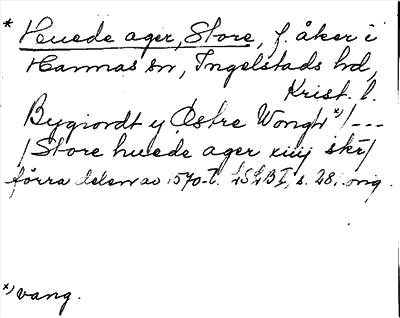 * Huede ager, Store, f. åker i
Hannas sn, Ingelstads hd,
Krist. l.
Bygiordt y Østre Wongh *) / ---
/ Store huede ager xiiij skr /
förra delen av 1570-t. LSLB I, s. 28, orig.
*) vang.